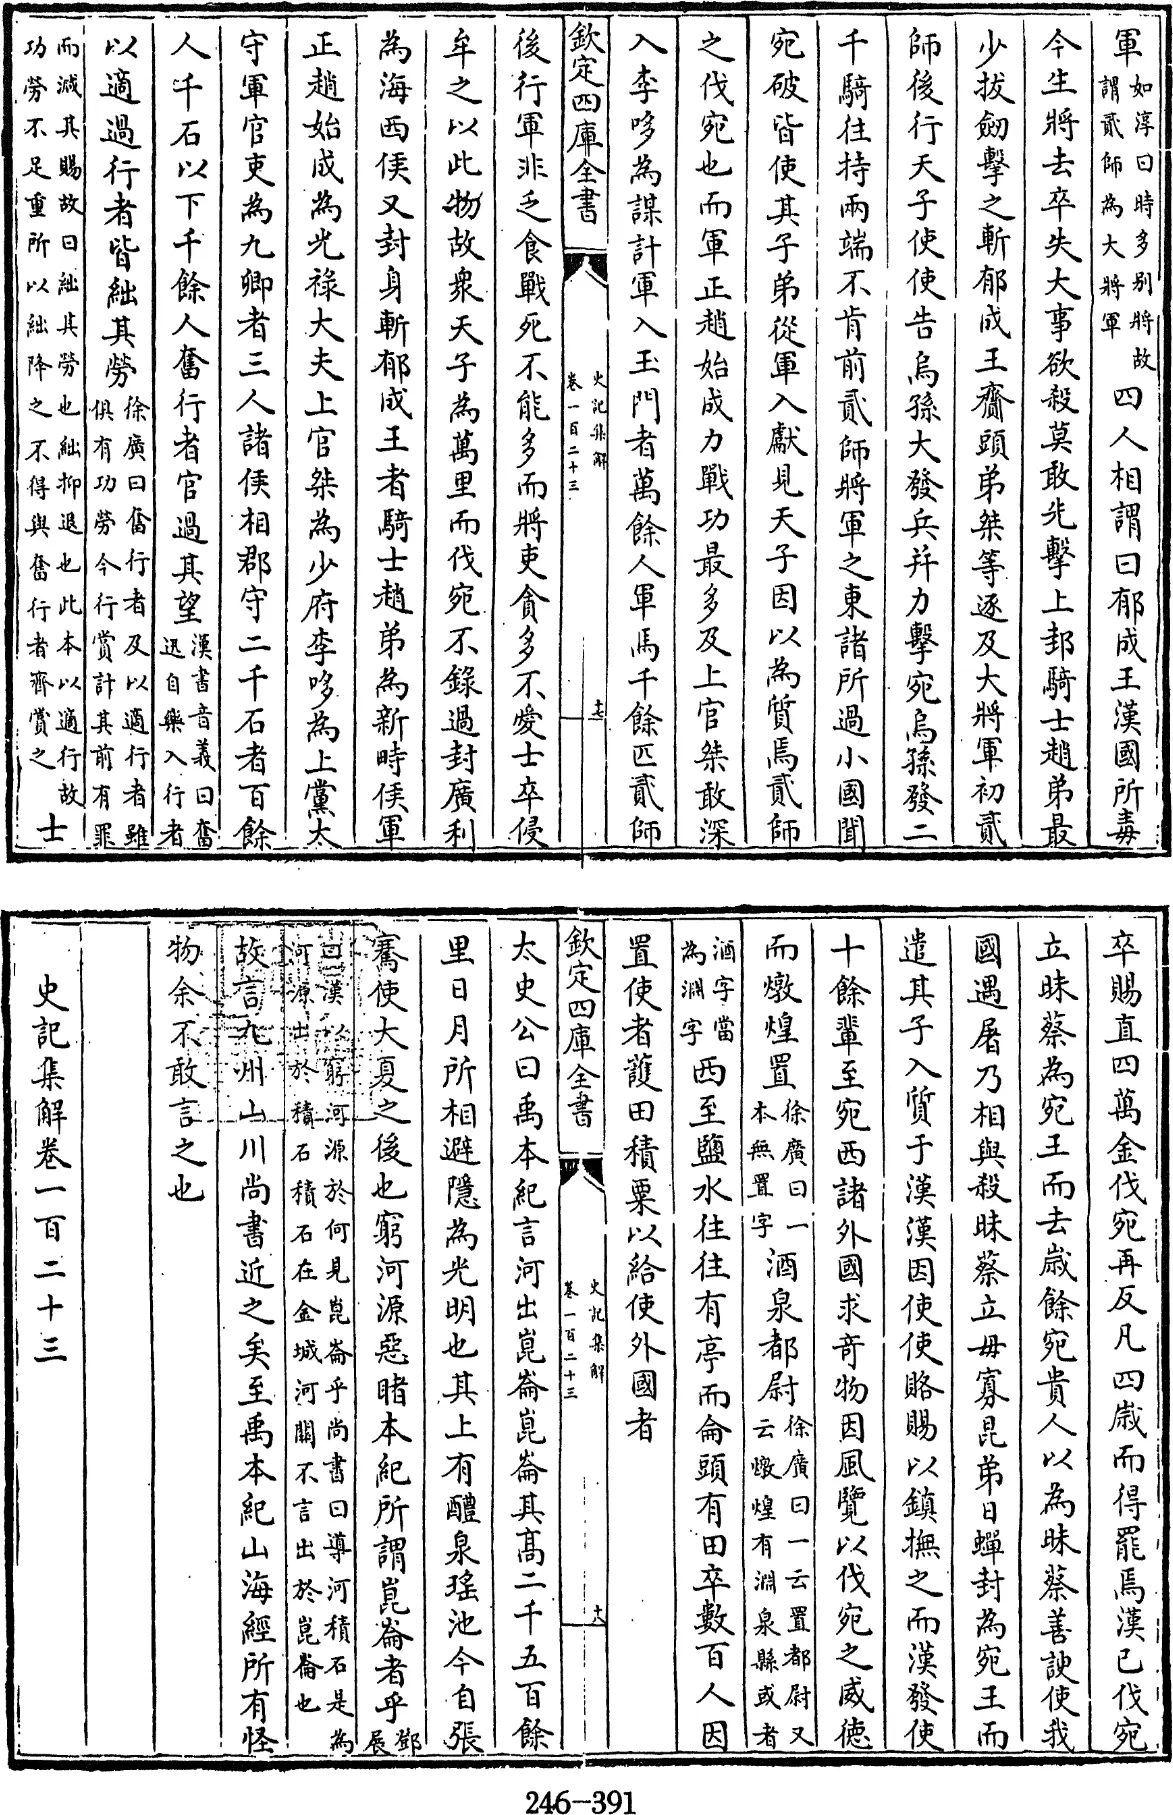 軍如淳曰時多别將故謂貳師為大將軍四人相謂曰郁成王漢國所毒
今生將去卒失大事欲殺莫敢先擊上邽騎士趙弟最
少拔劒擊之斬郁成王齎頭弟桀等逐及大將軍初貳
師後行天子使使告烏孫大發兵幷力擊宛烏孫發二
千騎往持兩端不肯前貳師將軍之東諸所過小國聞
宛破皆使其子弟從軍入獻見天子因以為質焉貳師
之伐宛也而軍正趙始成力戰功最多及上官桀敢深
入李哆為謀計軍入玉門者萬餘人軍馬千餘匹貳師
欽定四庫全書
史記集解
卷一百二十三
十七
後行軍非乏食戰死不能多而將吏貪多不愛士卒侵
牟之以此物故衆天子為萬里而伐宛不錄過封廣利
為海西侯又封身斬郁成王者騎士趙弟為新時侯軍
正趙始成為光祿大夫上官桀為少府李哆為上黨太
守軍官吏為九卿者三人諸侯相郡守二千石者百餘
人千石以下千餘人奮行者官過其望漢書音義曰奮迅自樂入行者
以適過行者皆絀其勞徐廣曰奮行者及以適行者雖俱有功勞今行賞計其前有罪
而減其賜故曰絀其勞也絀抑退也此本以適行故功勞不足重所以絀降之不得與奮行者齊賞之士
卒賜直四萬金伐宛再反凡四歲而得罷焉漢已伐宛
立昧蔡為宛王而去歲餘宛貴人以為昧蔡善諛使我
國遇屠乃相與殺昧蔡立毋寡昆弟曰蟬封為宛王而
遣其子入質于漢漢因使使賂賜以鎮撫之而漢發使
十餘輩至宛西諸外國求竒物因風覽以伐宛之威德
而燉煌置徐廣曰一本無置字酒泉都尉徐廣曰一云置都尉又云燉煌有淵泉縣或者
酒字當為淵字西至鹽水往往有亭而侖頭有田卒數百人因
置使者護田積粟以給使外國者
欽定四庫全書
史記集解
卷一百二十三
十八
太史公曰禹本紀言河出崑崙崑崙其髙二千五百餘
里日月所相避隱為光明也其上有醴泉瑤池今自張
騫使大夏之後也窮河源惡睹本紀所謂崑崙者乎鄧展
曰漢以窮河源於何見崑崙乎尚書曰導河積石是為河源出於積石積石在金城河關不言出於崑崙也
故言九州山川尚書近之矣至禹本紀山海經所有怪
物余不敢言之也
史記集解卷一百二十三
246-391